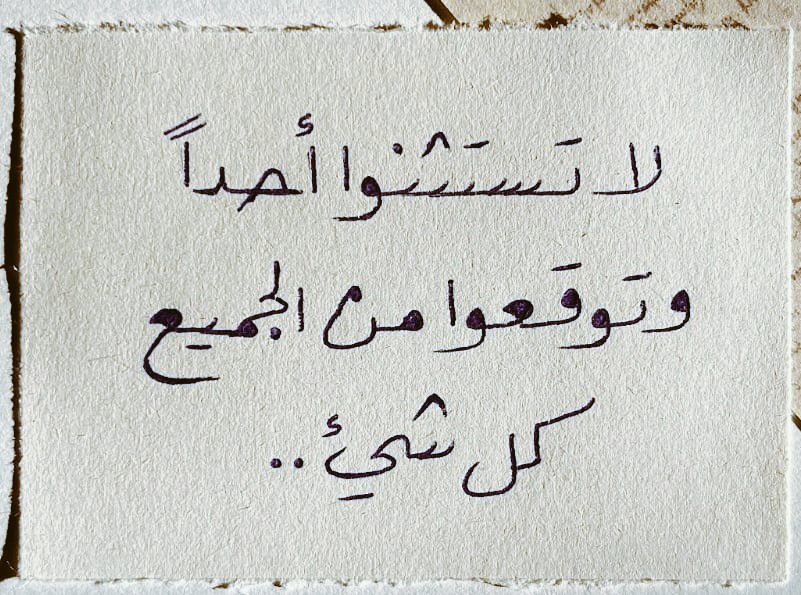 لا تستثنوا أحداً
وتوقعوا من الجميع
كل شيئ..